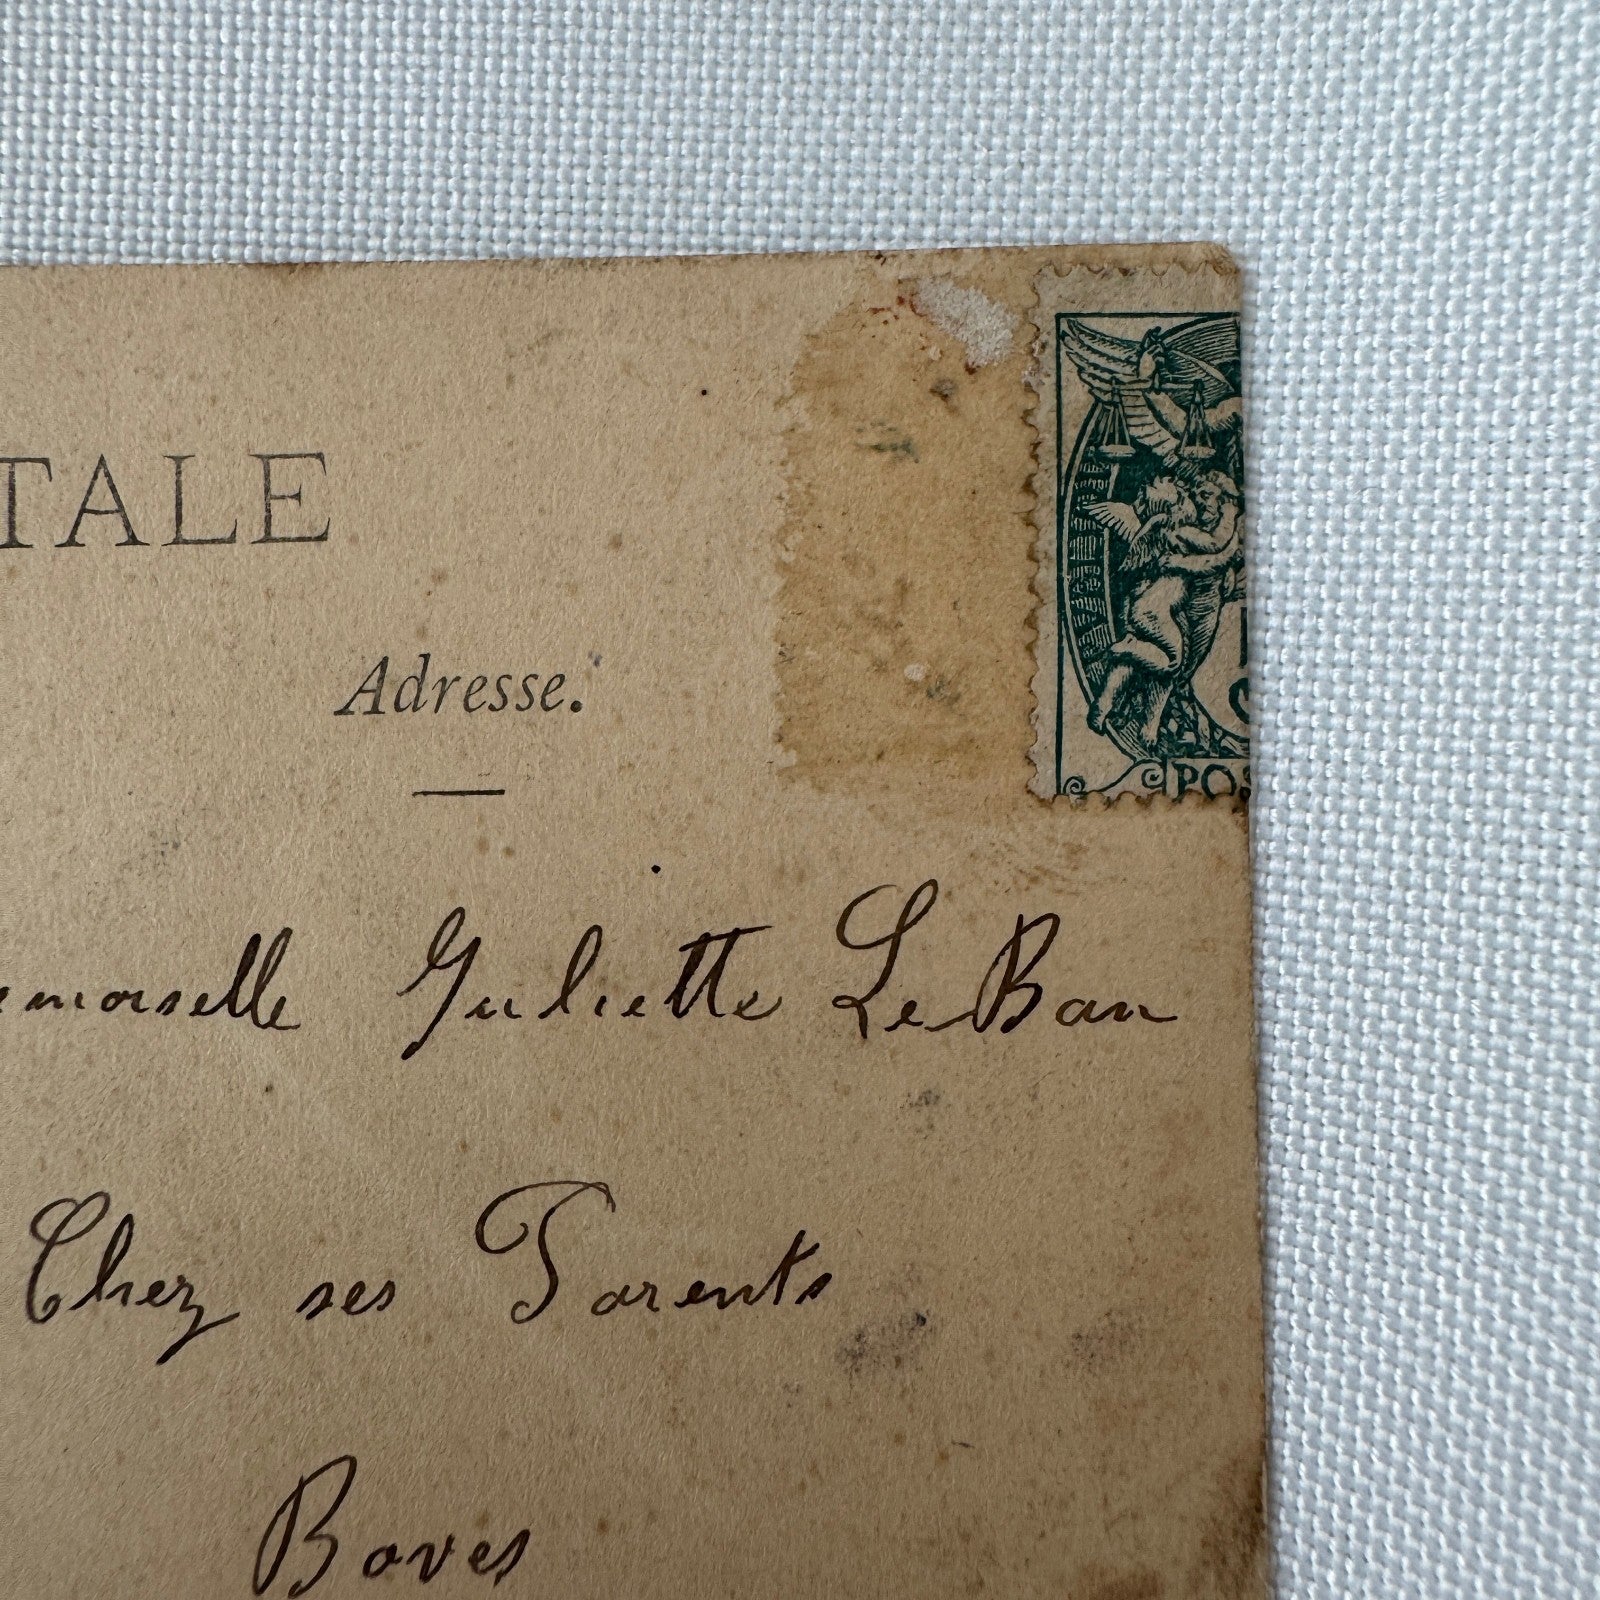 TALE
Adresse.
POS
emoiselle Juliette Le Ban
Chez ses Parents
Boves